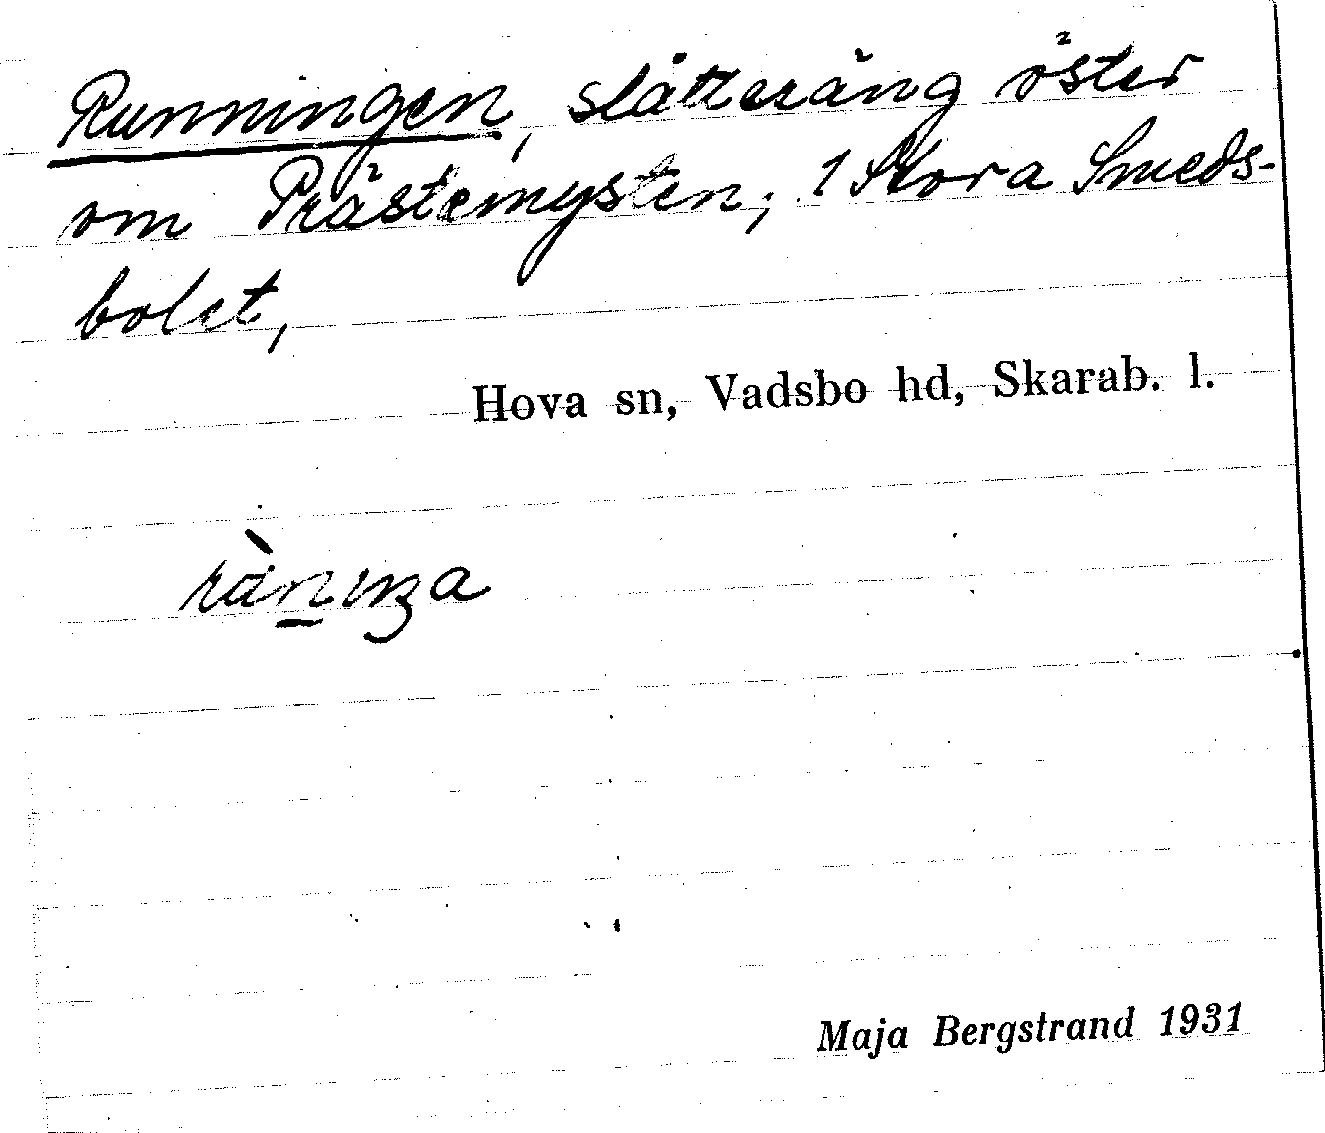 Runningen, slåtteräng öster
om Prästemysten, 1 Stora Smeds-
bolet,
Hova sn, Vadsbo hd, Skarab. l.
Maja Bergstrand 1931